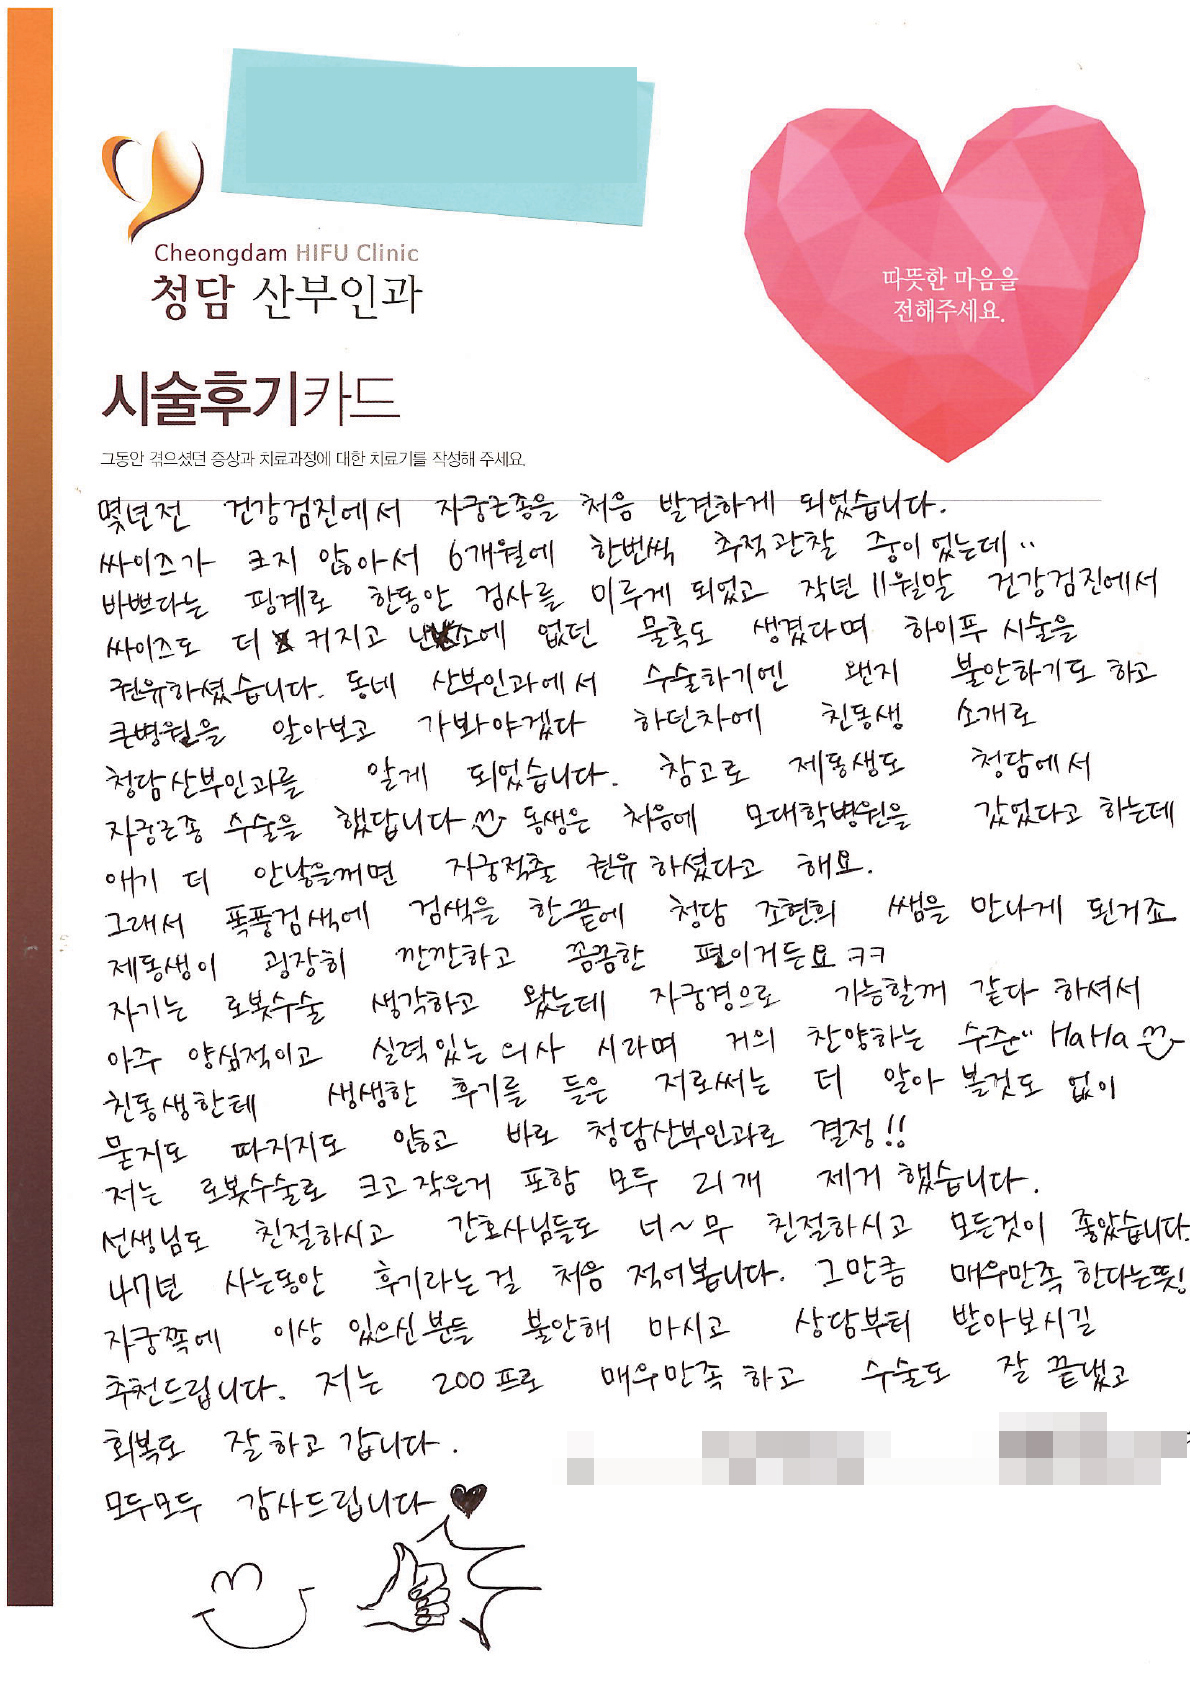 Cheongdam HIFU Clinic
청담 산부인과
따뜻한 마음을
전해주세요.
시술후기카드
그동안 겪으셨던 증상과 치료과정에 대한 치료기를 작성해 주세요.
몇년전 건강검진에서 자궁근종을 처음 발견하게 되었습니다.
싸이즈가 크지 않아서 6개월에 한번씩 추적관찰 중이었는데..
바쁘다는 핑계로 한동안 검사를 미루게 되었고 작년 11월말 건강검진에서
싸이즈도 더 커지고 난소에 없던 물혹도 생겼다며 하이푸 시술을
권유하셨습니다. 동네 산부인과에서 수술하기엔 왠지 불안하기도 하고
큰병원을 알아보고 가봐야겠다 하던차에 친동생 소개로
청담산부인과를 알게 되었습니다. 참고로 제동생도 청담에서
자궁근종 수술을 했답니다 동생은 처음에 모대학병원을 갔었다고 하는데
애기 더 안낳을꺼면 자궁적출 권유하셨다고 해요.
그래서 폭풍검색에 검색을 한끝에 청담 조현희 쌤을 만나게 된거죠
제동생이 굉장히 깐깐하고 꼼꼼한 편이거든요 ㅋㅋ
자기는 로봇수술 생각하고 왔는데 자궁경으로 가능할꺼 같다 하셔서
아주 양심적이고 실력있는 의사 시라며 거의 찬양하는 수준.. HaHa
친동생한테 생생한 후기를 들은 저로써는 더 알아 볼것도 없이
묻지도 따지지도 않고 바로 청담산부인과로 결정!!
저는 로봇수술로 크고 작은거 포함 모두 21개 제거 했습니다.
선생님도 친절하시고 간호사님들도 너~무 친절하시고 모든것이 좋았습니다.
47년 사는동안 후기라는걸 처음 적어봅니다. 그만큼 매우만족 한다는뜻!
자궁쪽에 이상 있으신분들 불안해 마시고 상담부터 받아보시길
추천드립니다. 저는 200프로 매우만족 하고 수술도 잘 끝냈고
회복도 잘하고 갑니다.
모두모두 감사드립니다 ♥